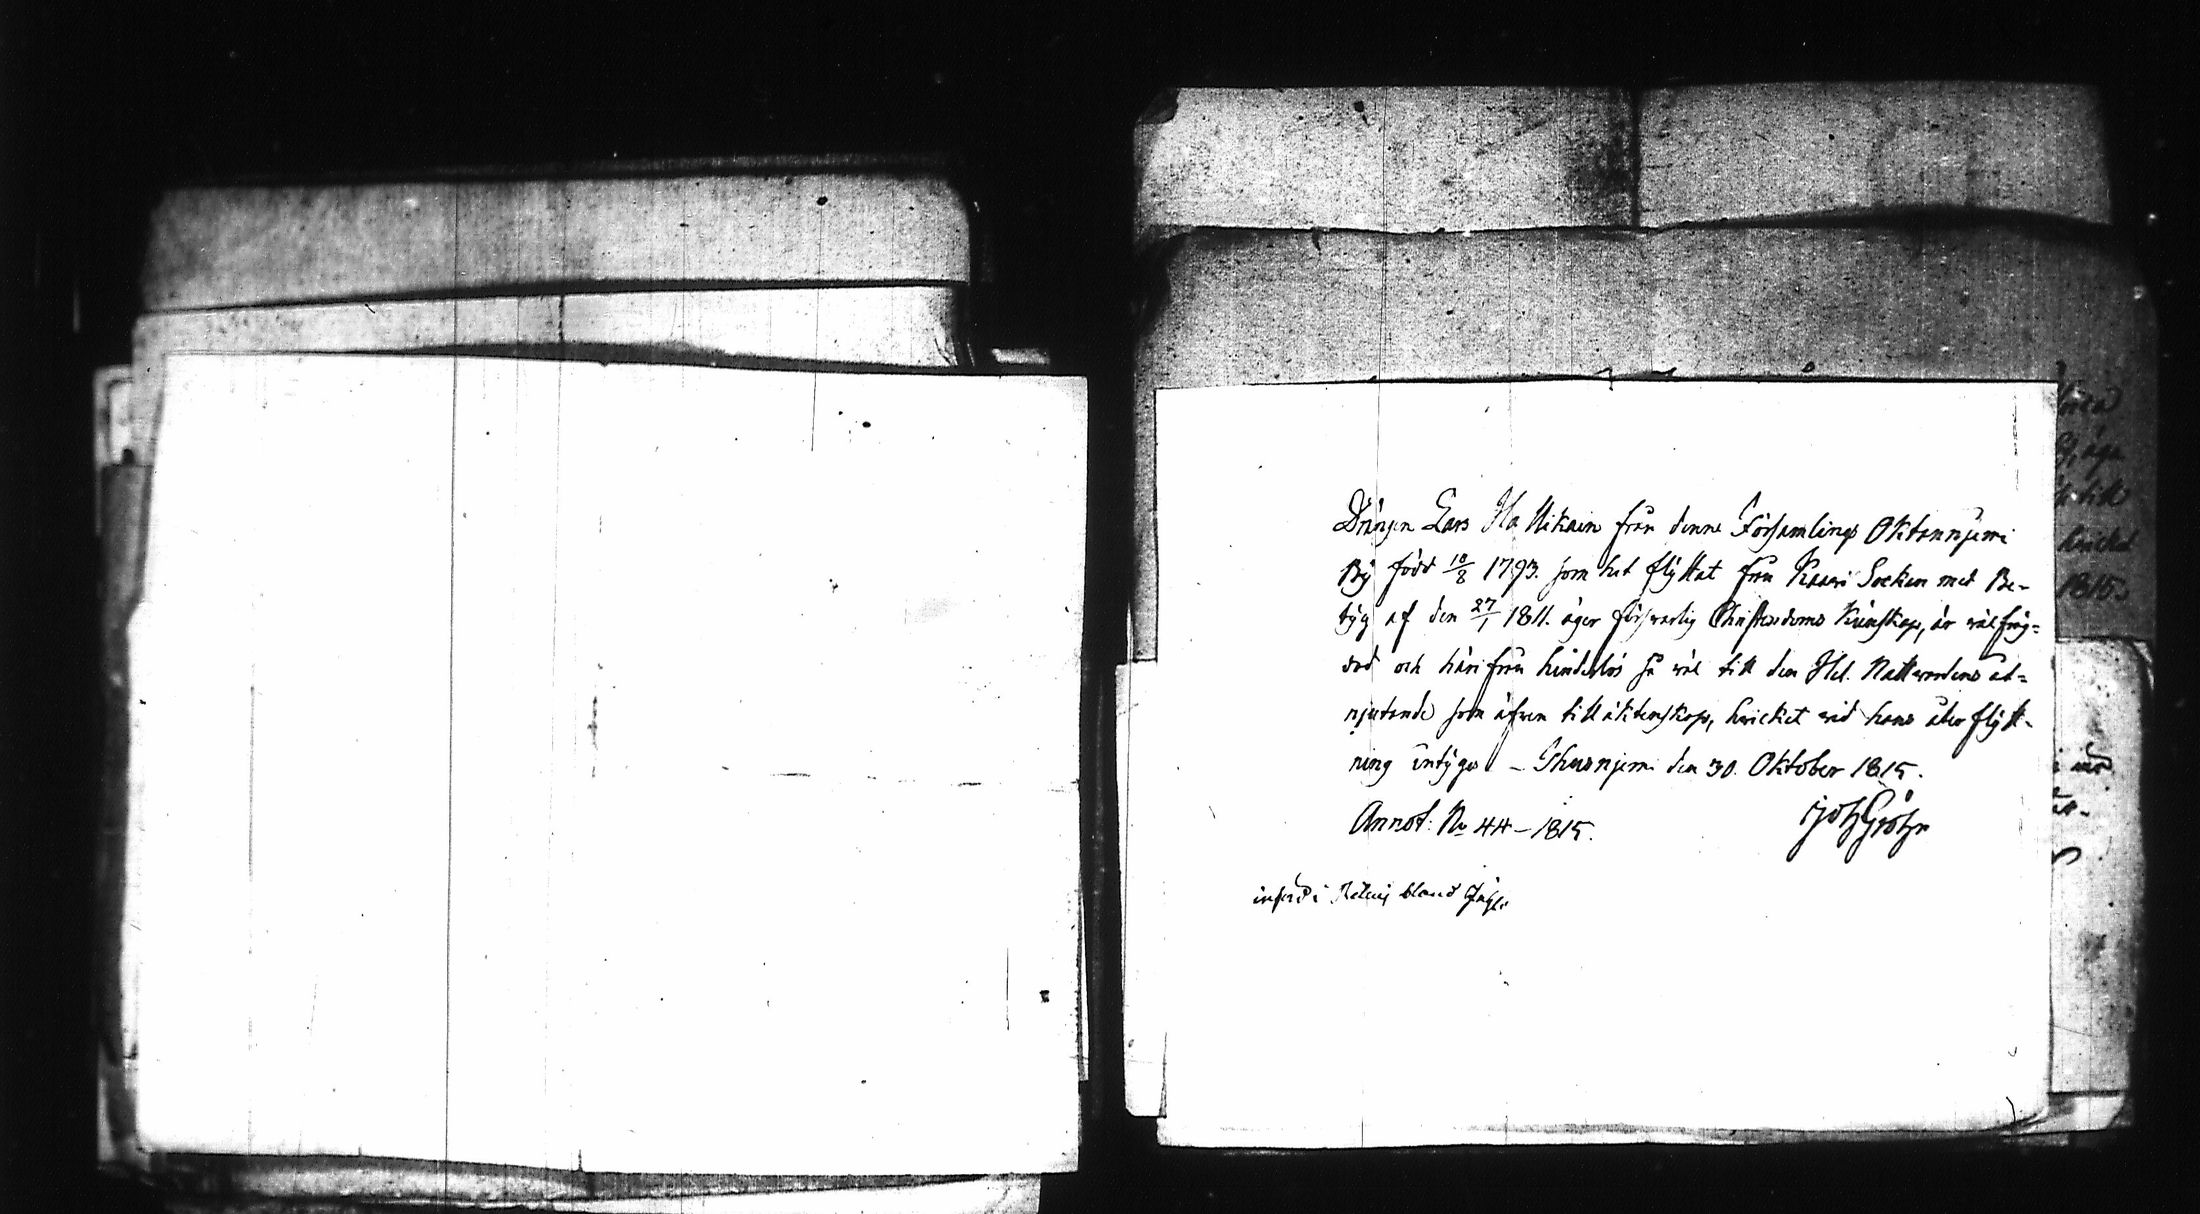 Drängen Lars Hallikain från denne Församlings Oktannjemi
By född 10/8 1793. som hit flyttat från Kaavi Socken med Be-
tyg af den 27/1 1811. äger försvarlig Christendoms Kunskap, är välfräg=
dad och härifrån hinderlös så väl till den Hel. Nattvardens åt=
njutande som äfven till äktenskap, hvilket vid hans återflytt-
ning intygas – Idensnjemi den 30. Oktober 1815.
Annot: No 44 – 1815.
Joh Gröhn
införd i bland
hvilket
1815.